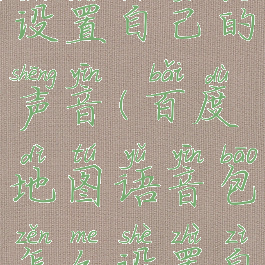 设置自己的
shēng yīn bǎi dù
声音(百度
dì tú yǔ yīn bāo
地图语音包
zěn me shè zhì zì
怎么设置自